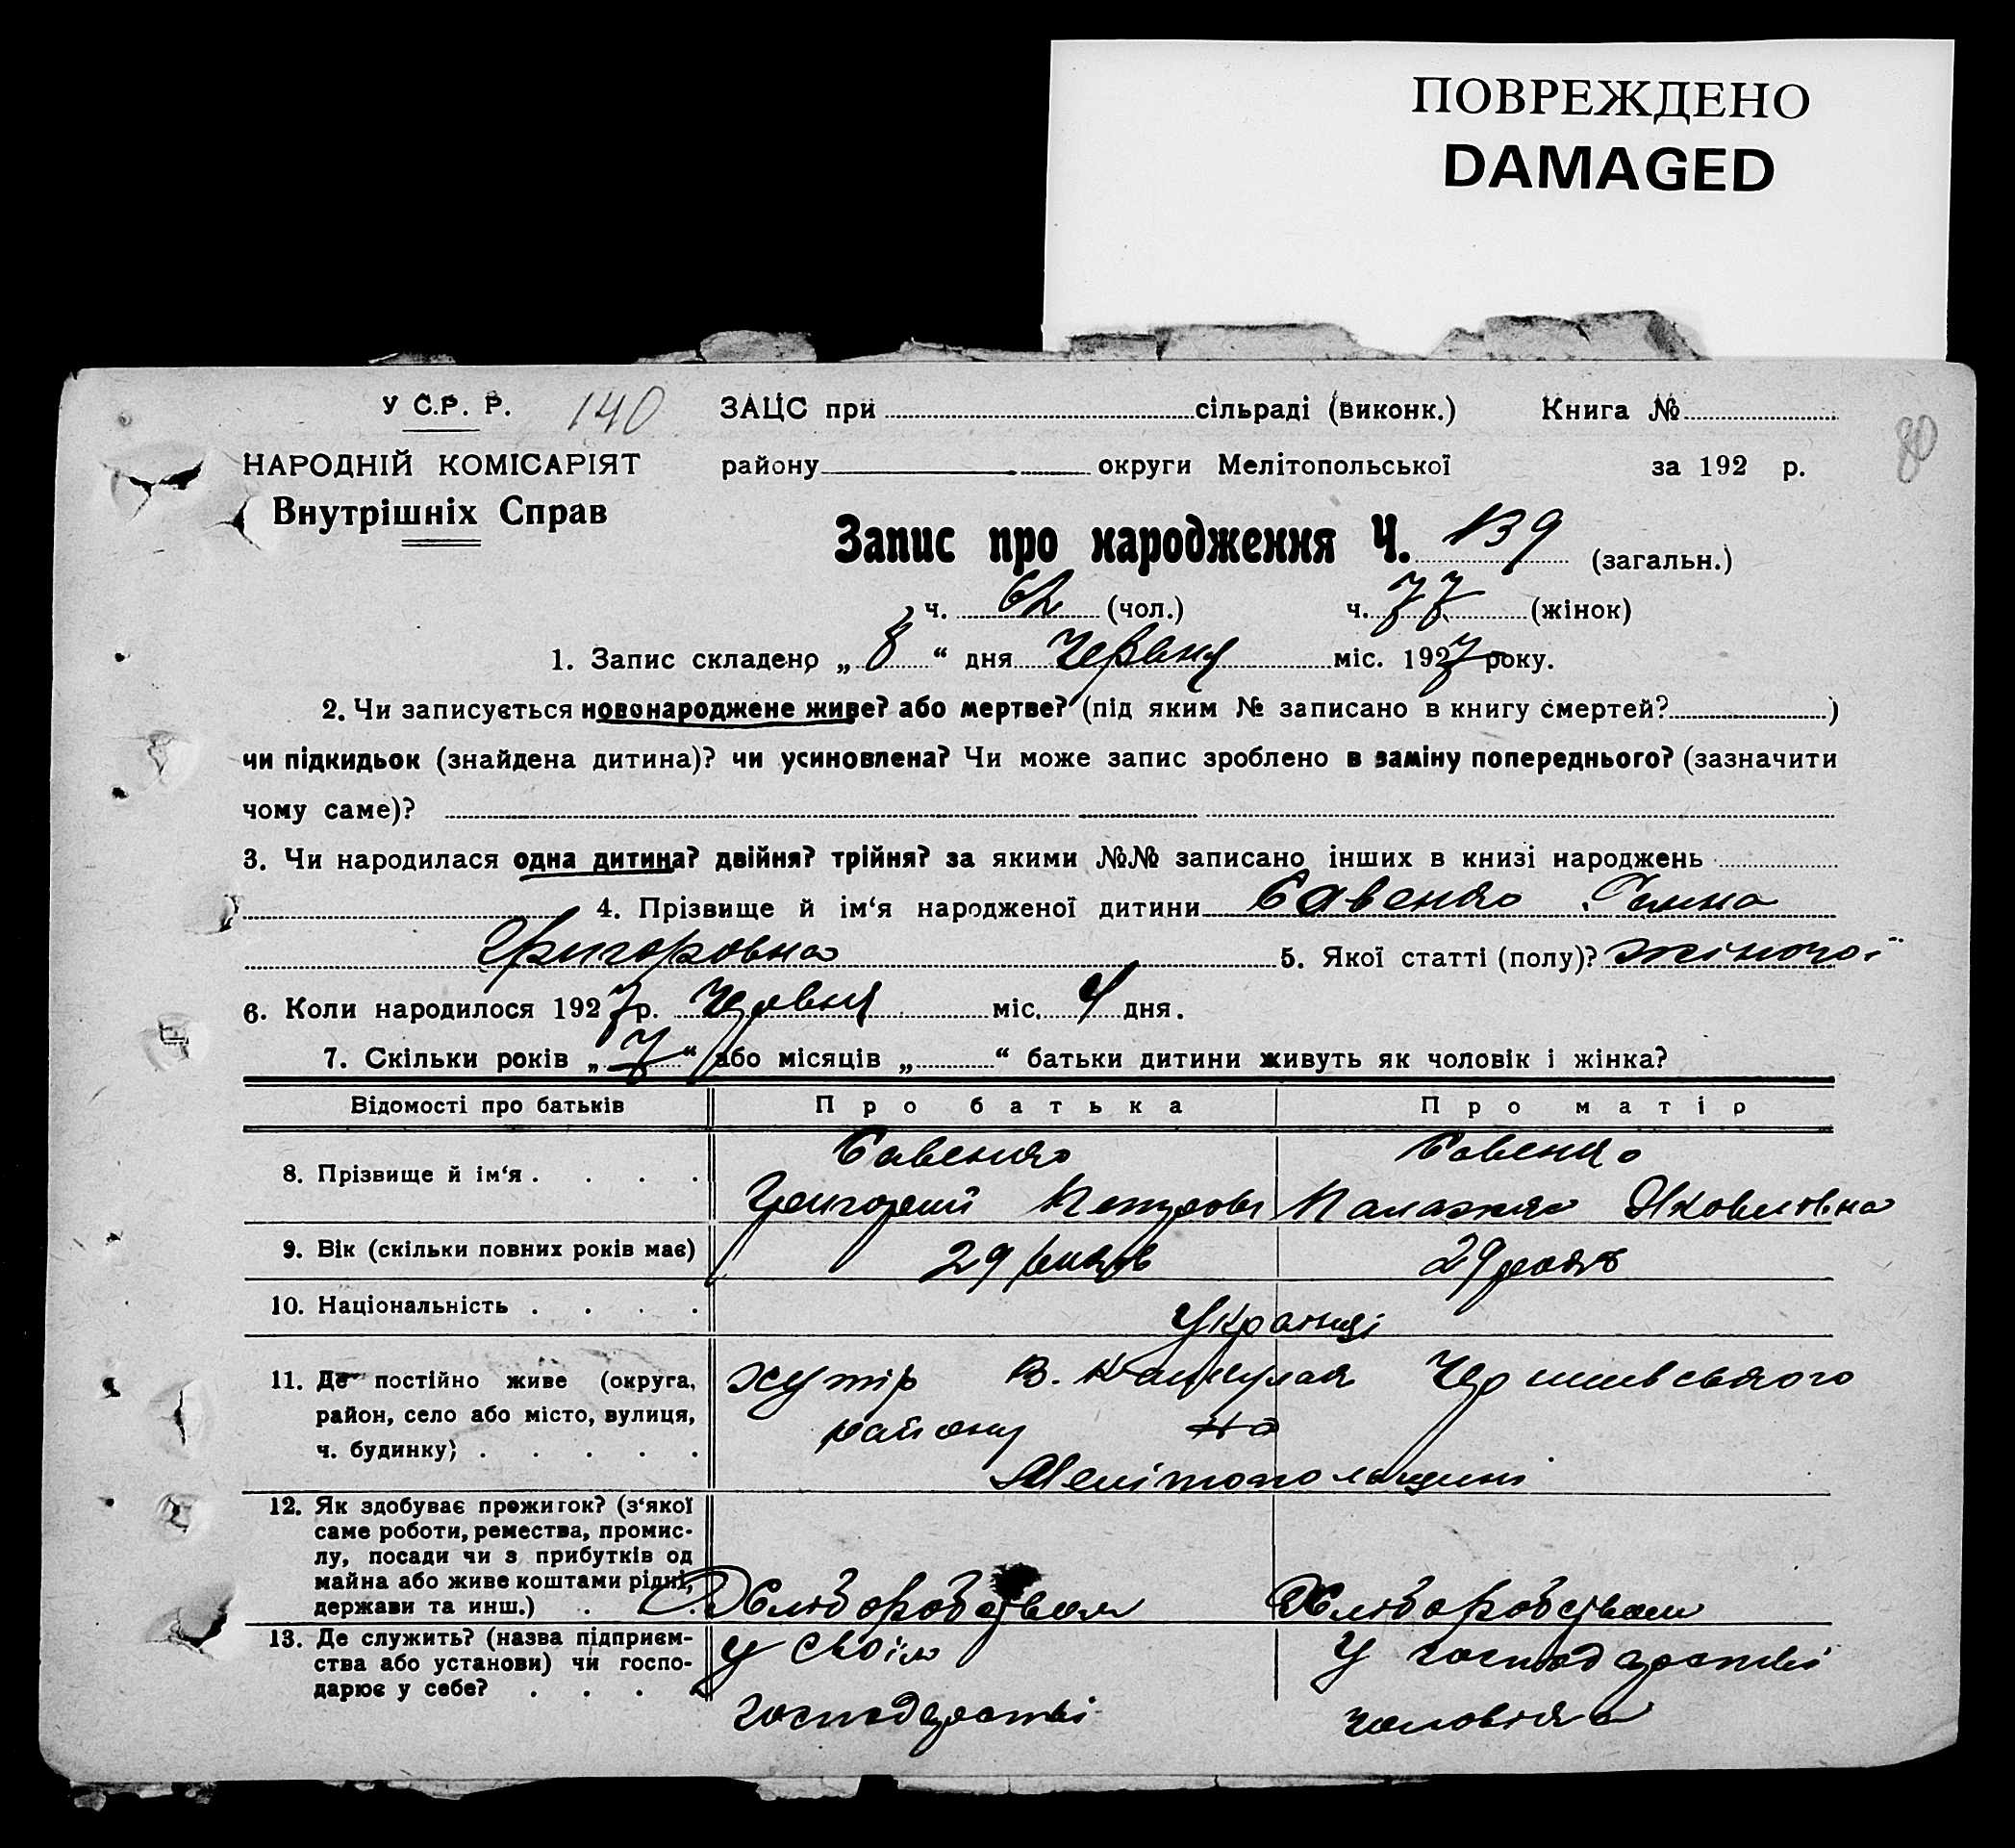 ПОВРЕЖДЕНО
DAMAGED
У С.Р. Р. 140 ЗАЦС при сільраді (виконк.) Книга № 80
НАРОДНІЙ КОМІСАРІЯТ району округи Мелітопольської за 192 р.
Внутрішніх Справ
Запис про народження Ч. 139 (загальн.)
ч. 62 (чол.) ч. 77 (жінок)
1. Запис складено „ 8 “ дня Червня міс. 1927 року.
2. Чи записується новонароджене живе? або мертве? (під яким № записано в книгу смертей? )
чи підкидьок (знайдена дитина)? чи усиновлена? Чи може запис зроблено в заміну попереднього? (зазначити
чому саме)?
3. Чи народилася одна дитина? двійня? трійня? за якими №№ записано інших в книзі народжень
4. Прізвище й ім‘я народженої дитини Савенко Ганна
Григоровна 5. Якої статті (полу)? жіночої
6. Коли народилося 1927 р. Червня міс. 4 дня.
7. Скільки років „ 7 “ або місяців „ “ батьки дитини живуть як чоловік і жінка?
Відомості про батьків Про батька Про матір
Савенко Савенко
8. Прізвище й ім‘я . . . .
Григорий Петрови Палажка Яковловна
9. Вік (скільки повних років має) 29 років 29 років
10. Національність . . . . Українці
11. Де постійно живе (округа, хутір В. Чернигівського
район, село або місто, вулиця, району на
ч. будинку) . . . . .
Мелітопольщині
12. Як здобуває прожиток? (з‘якої
саме роботи, ремества, промис-
лу, посади чи з прибутків од
майна або живе коштами рідні,
держави та инш.) . . . Хліборобством Хліборобством
13. Де служить? (назва підприєм- у своїм у господарстві
ства або установи) чи госпо-
дарює у себе? . . . . господарстві чоловіка